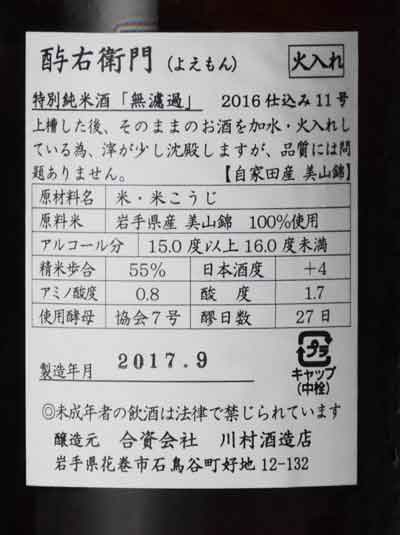 酉与右衛門 (よえもん) 火入れ
特別純米酒「無濾過」 2016仕込み11号
上槽した後、そのままのお酒を加水・火入れし
ている為、滓が少し沈殿しますが、品質には問
題ありません。 【自家田産 美山錦】
原材料名 米・米こうじ
原料米 岩手県産 美山錦 100%使用
アルコール分 15.0度以上16.0度未満
精米歩合 55% 日本酒度 +4
アミノ酸度 0.8 酸 度 1.7
使用酵母 協会7号 醪日数 27日
製造年月 2017.9
プラ
キャップ
(中栓)
◎未成年者の飲酒は法律で禁じられています
醸造元 合資会社 川村酒造店
岩手県花巻市石鳥谷町好地12-132